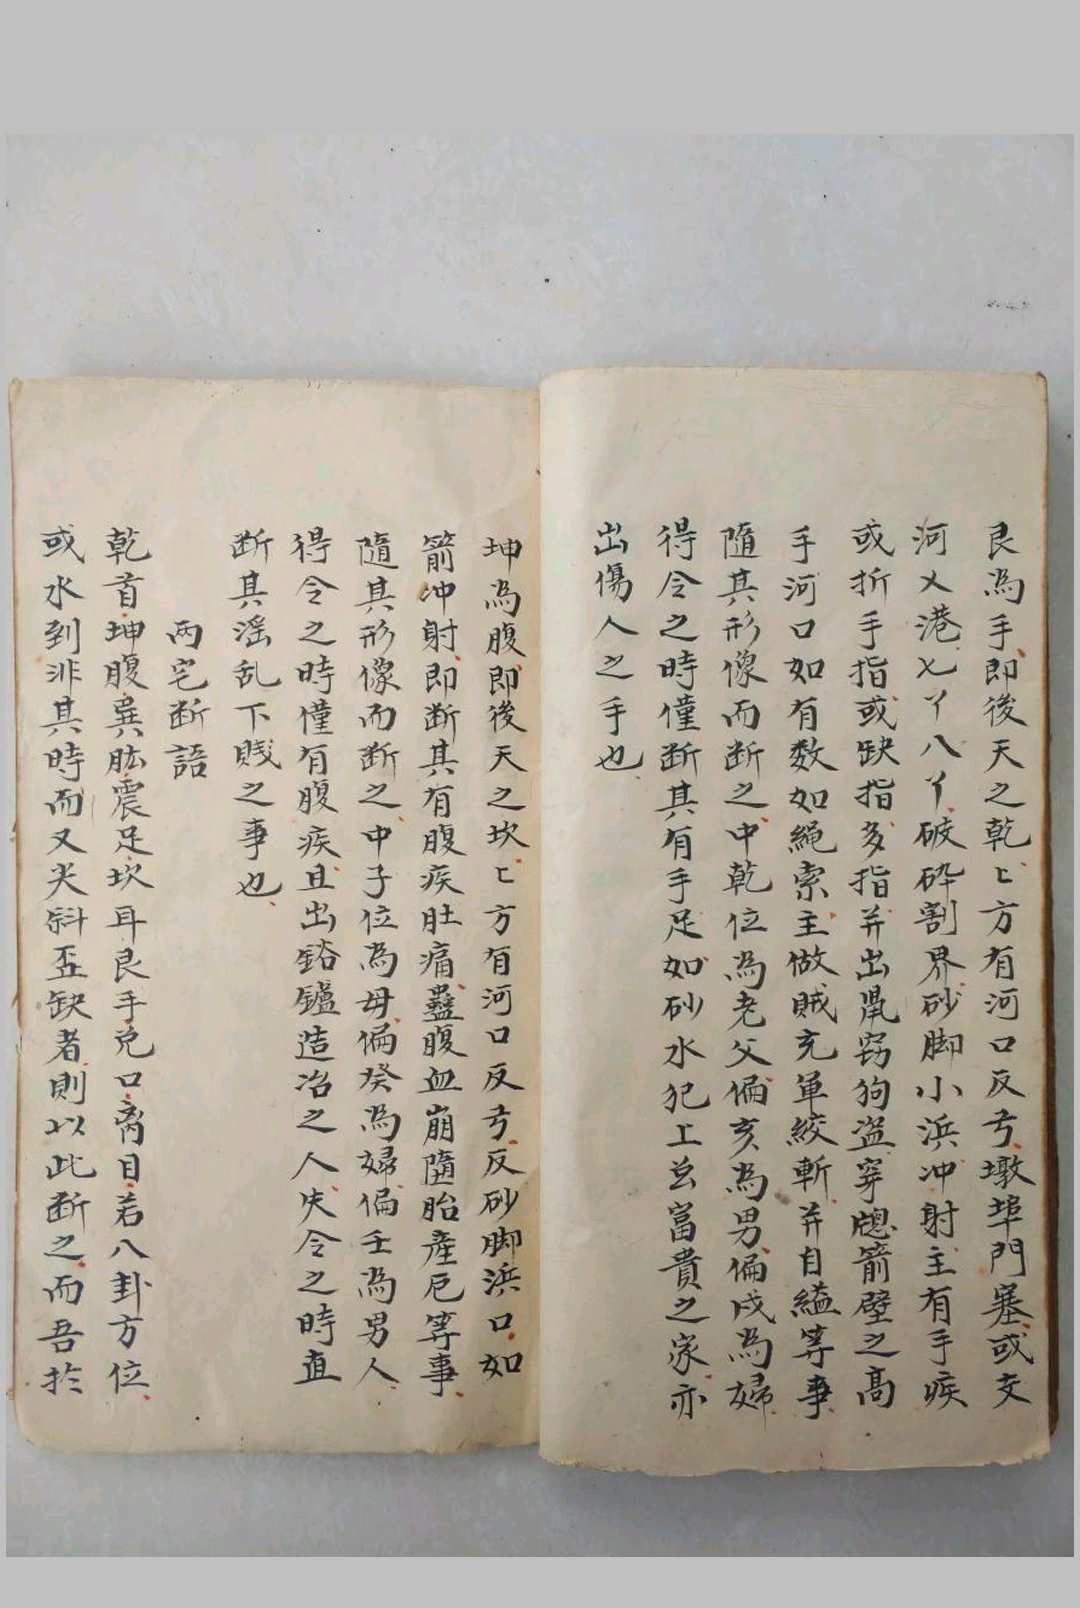 艮為手即後天之乾〻方有河口反弓墩埠門塞或交
河乂港七丫八丫破碎割界砂脚小浜冲射主有手疾
或折手指或缺指多指并出鼠窃狗盗穿窻箭壁之高
手河口如有数如繩索主做贼充軍絞斬并自縊等事
隨其形像而断之中乾位為老父偏亥為男偏戌為婦
得令之時僅断其有手足如砂水犯上总富貴之家亦
出傷人之手也
坤為腹即後天之坎〻方有河口反弓反砂脚浜口如
箭冲射即断其有腹疾肚痛蠱腹血崩隨胎產厄等事
隨其形像而断之中子位為母偏癸為婦偏壬為男人
得令之時僅有腹疾且出鎔鑪造冶之人失令之時直
断其滛乱下贱之事也
两宅断語
乾首坤腹巽肱震足坎耳艮手兌口离目若八卦方位
或水到非其時而又尖斜歪缺者則以此断之而吾於